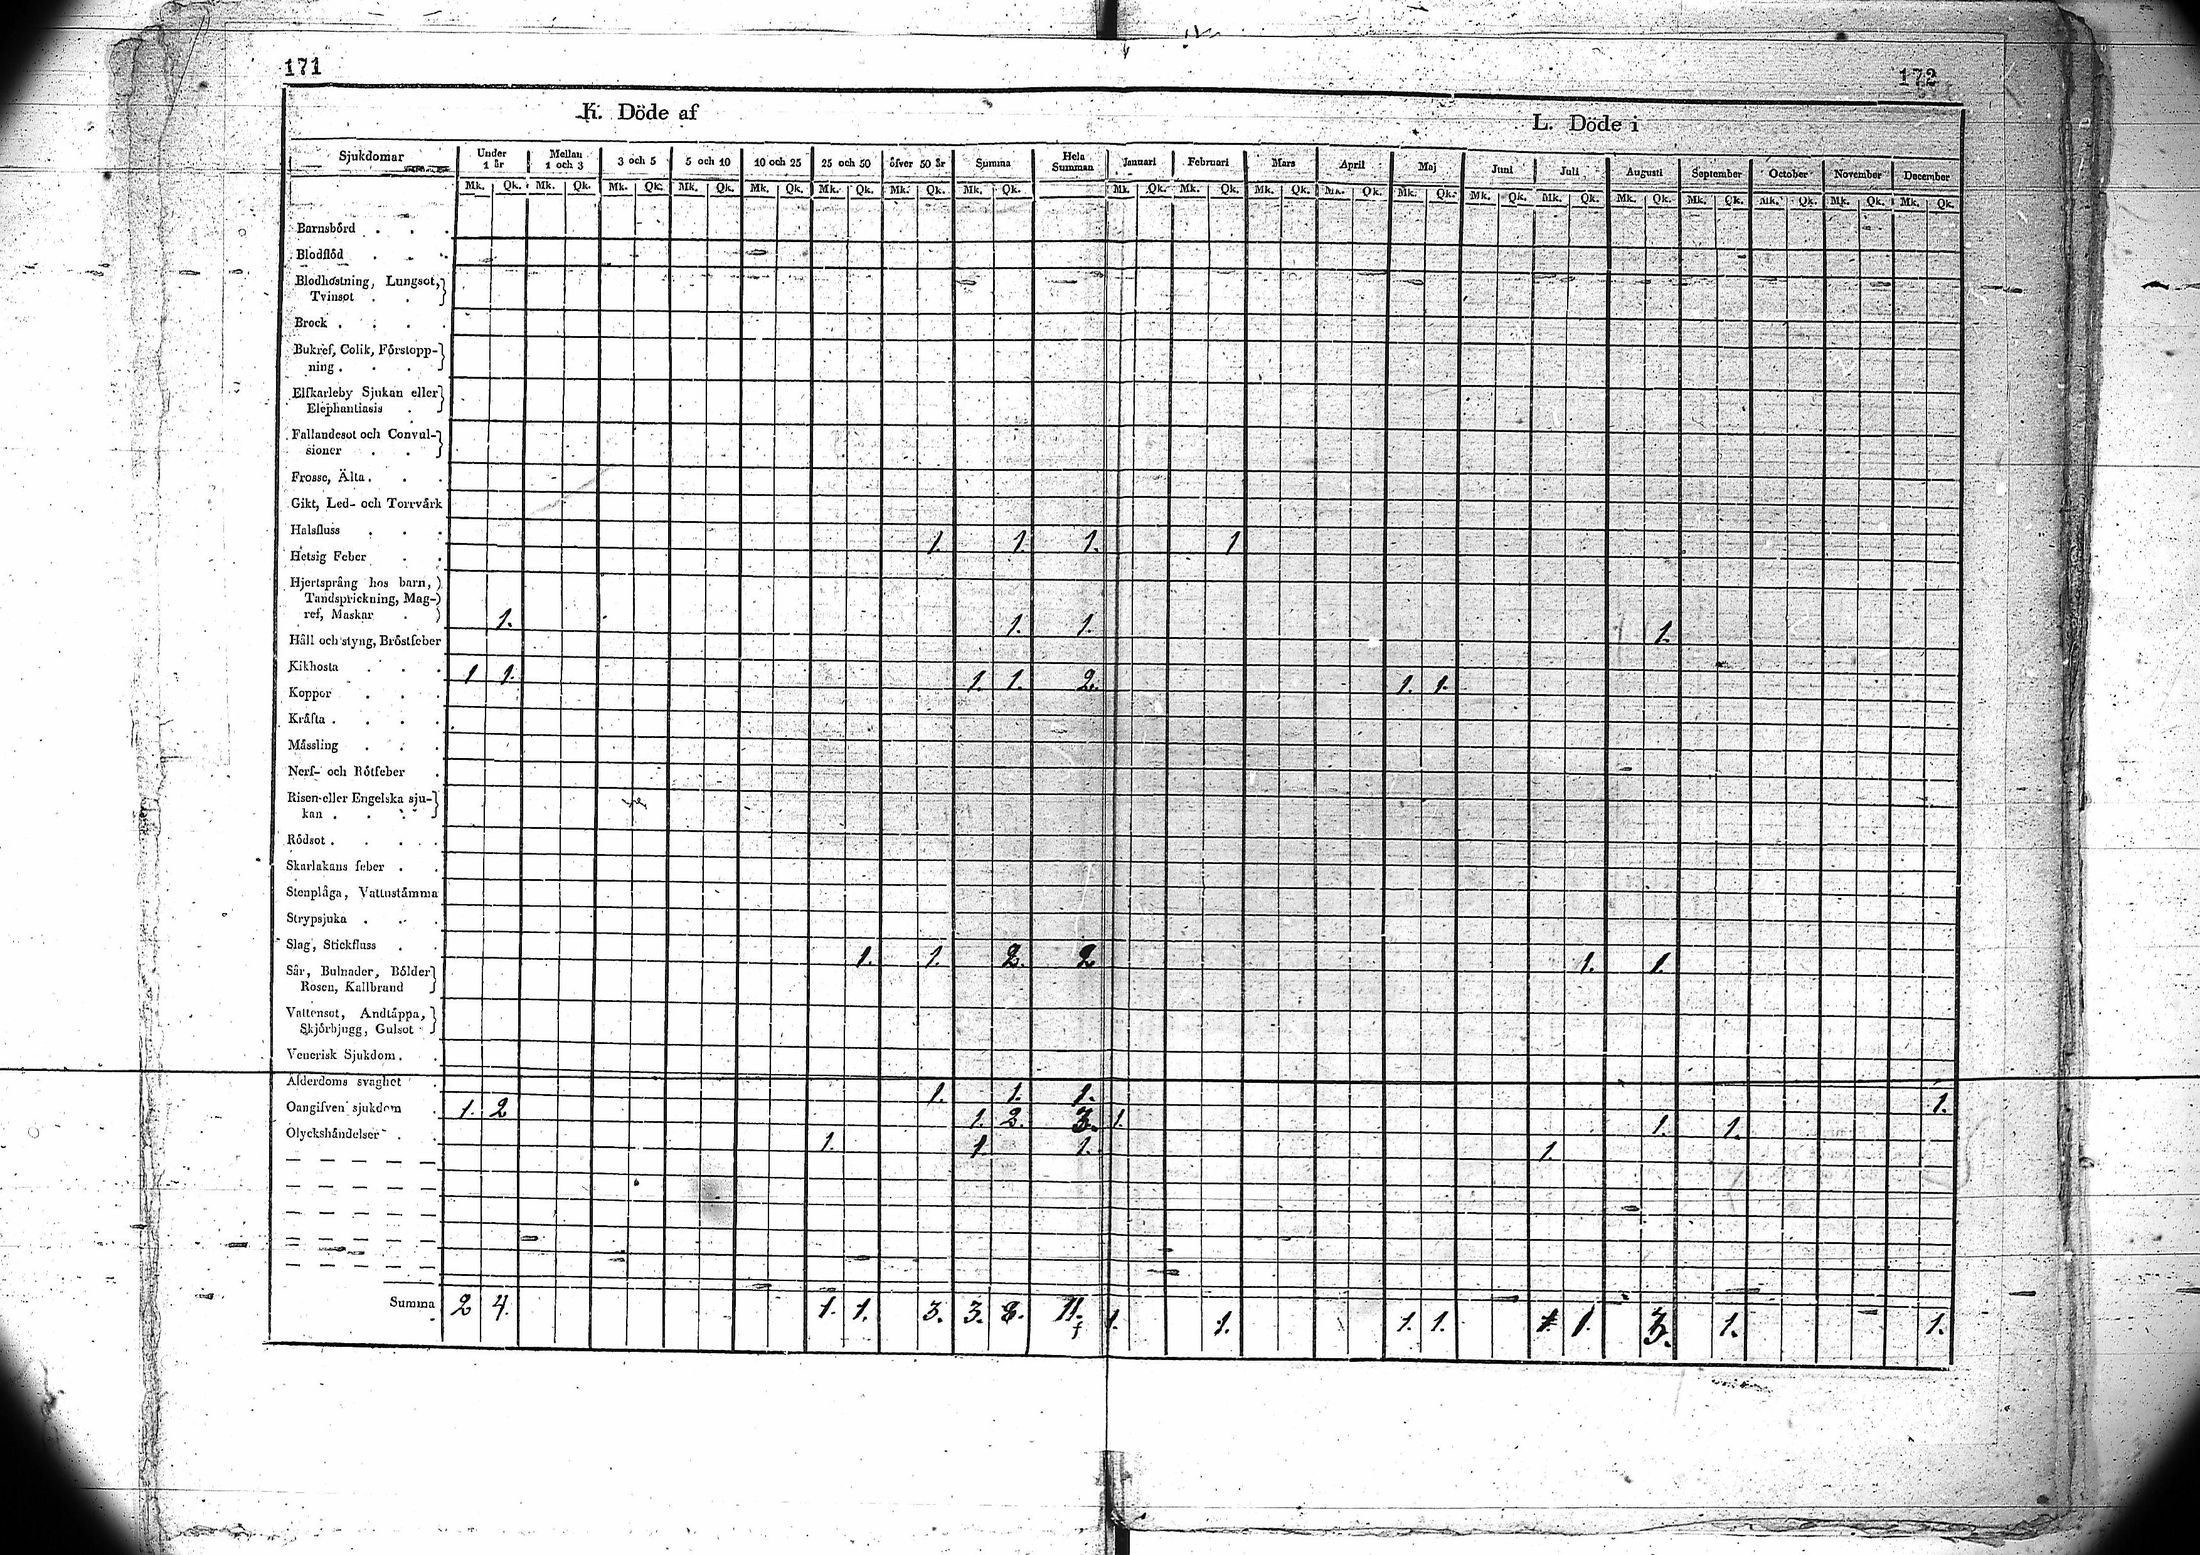 171
172
K. Döde af
L. Döde i
Sjukdomar Under 1 år Mellan 1 och 3 3 och 5 5 och 10 10 och 25 25 och 50 öfver 50 år Summa Hela Summan Januari Februari Mars April Maj Juni Juli Augusti September October November December
Mk. Qk. Mk. Qk. Mk. Qk. Mk. Qk. Mk. Qk. Mk. Qk. Mk. Qk. Mk. Qk. Mk. Qk. Mk. Qk. Mk. Qk. Mk. Qk. Mk. Qk. Mk. Qk. Mk. Qk. Mk. Qk. Mk. Qk. Mk. Qk. Mk. Qk. Mk. Qk.
Barnsbörd
Blodflöd
Blodhostning, Lungsot,
Tvinsot
Brock
Bukref, Colik, Förstopp-
ning
Elfkarleby Sjukan eller
Elephantiasis
Fallandesot och Convul-
sioner
Frosse, Älta
Gikt, Led- och Torrvärk
Halsfluss
Hetsig Feber 1. 1. 1. 1
Hjertsprång hos barn,
Tandsprickning, Mag-
ref, Maskar 1. 1. 1. 1.
Håll och styng, Bröstfeber
Kikhosta 1 1. 1. 1. 2. 1. 1.
Koppor
Kräfta
Mässling
Nerf- och Rötfeber
Risen eller Engelska sju-
kan
Rödsot
Skarlakans feber
Stenplåga, Vattustämma
Strypsjuka
Slag, Stickfluss 1. 1. 2. 2 1. 1.
Sår, Bulnader, Bölder
Rosen, Kallbrand
Vattensot, Andtäppa,
Skjörbjugg, Gulsot
Venerisk Sjukdom
Ålderdoms svaghet 1. 1. 1. 1.
Oangifven sjukdom 1. 2 1. 2. 3. 1. 1. 1.
Olyckshändelser 1. 1. 1. 1.
Summa 2 4. 1. 1. 3. 3. 8. 11. 1. 1. 1. 1. 1. 1. 3. 1. 1.